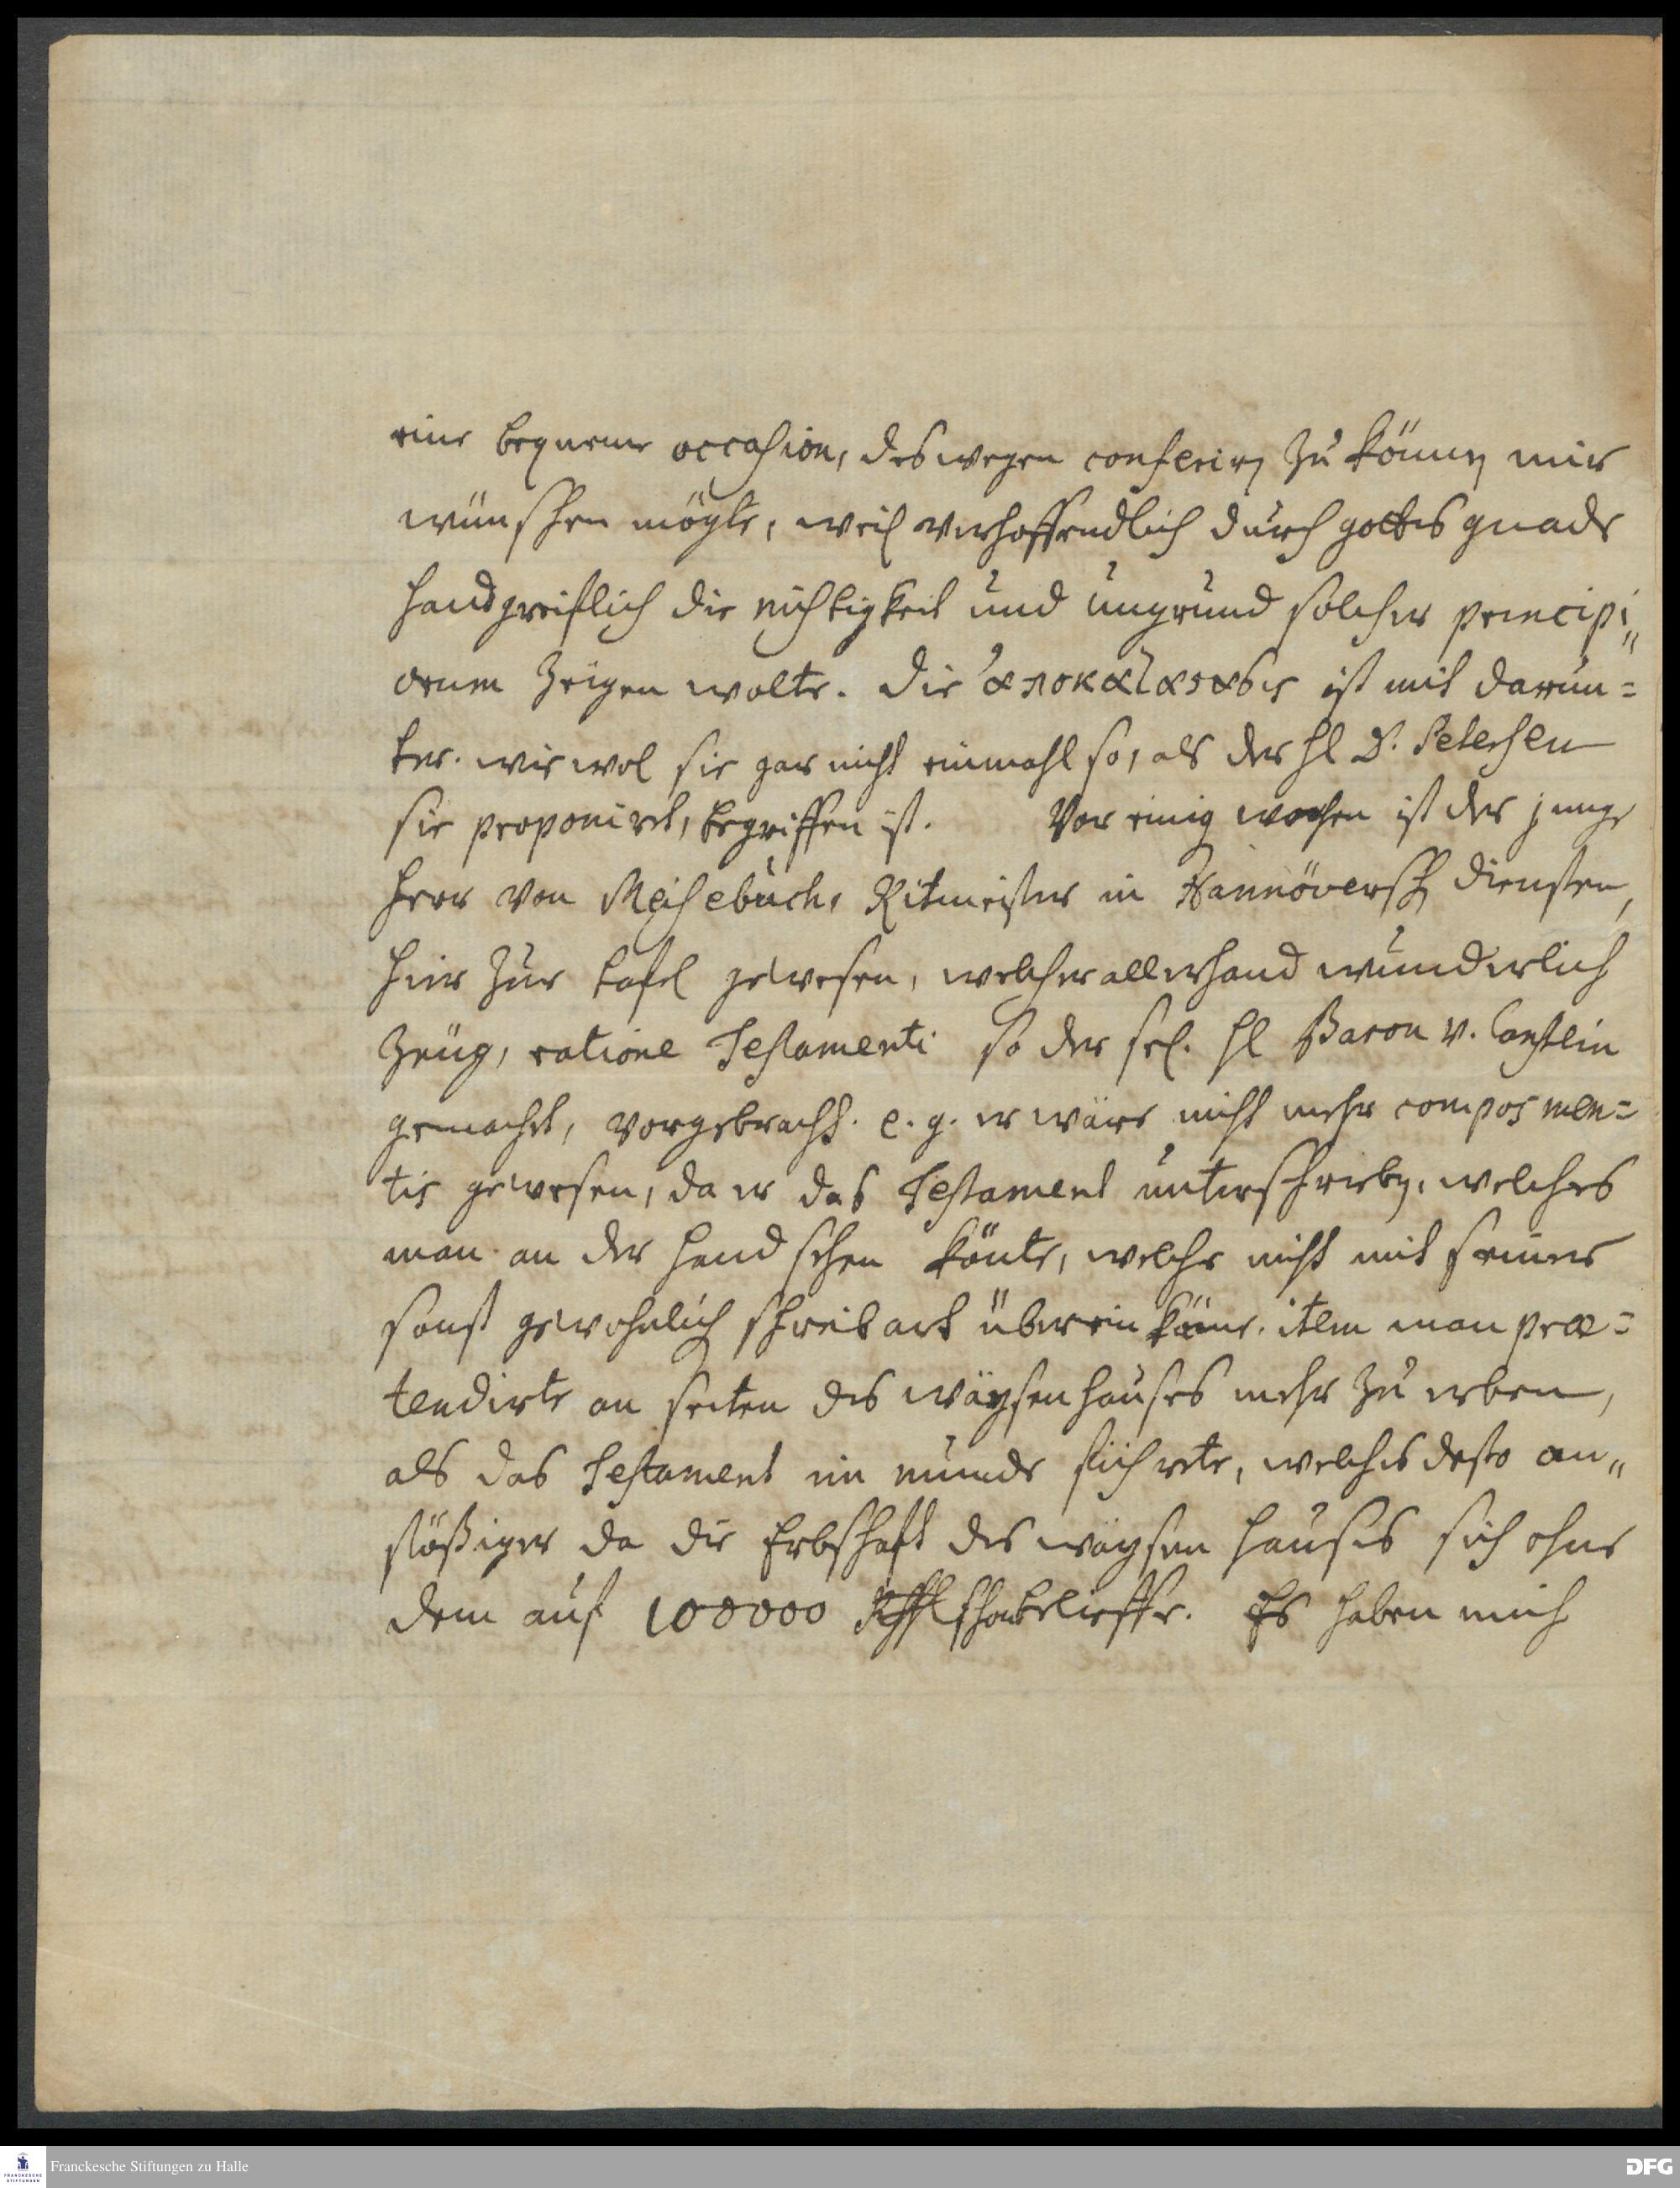 eine bequeme occasion, deswegen conferiren zu können mir
wünschen mögte, weil verhoffendlich durch gottes gnade
handgreiflich die nichtigkeit und ungrund solcher principi„
orum zeigen wolte. Die ἀποκατάστασις ist mit darun=
ter. wie wol sie gar nicht einmahl so, als der Hl D. Petersen
sie proponiret, begriffen ist. Vor einig wochen ist der junge
Herr von Meisebuch, Ritmeister in Hannöversch diensten,
hier zur tafel gewesen, welcher allerhand wunderlich
Zeüg, ratione Testamenti so der sel. Hl Baron v. Canstein
gemacht, vorgebracht. e. g. er wäre nicht mehr compos men=
tis gewesen, da er das Testament unterschrieben, welches
man an der Hand sehen könte, welche nicht mit seiner
sonst gewohnlich schreibart überein käme. item man præ=
tendirte an seiten des wäysenhauses mehr zu erben,
als das Testament im munde führete, welches desto an„
stößiger da die Erbschafft des wäysen hauses sich ohne
dem auf 100000 belieffe. Es haben mich
Franckesche Stiftungen zu Halle
FRANCKESCHE STIFTUNGEN
DFG